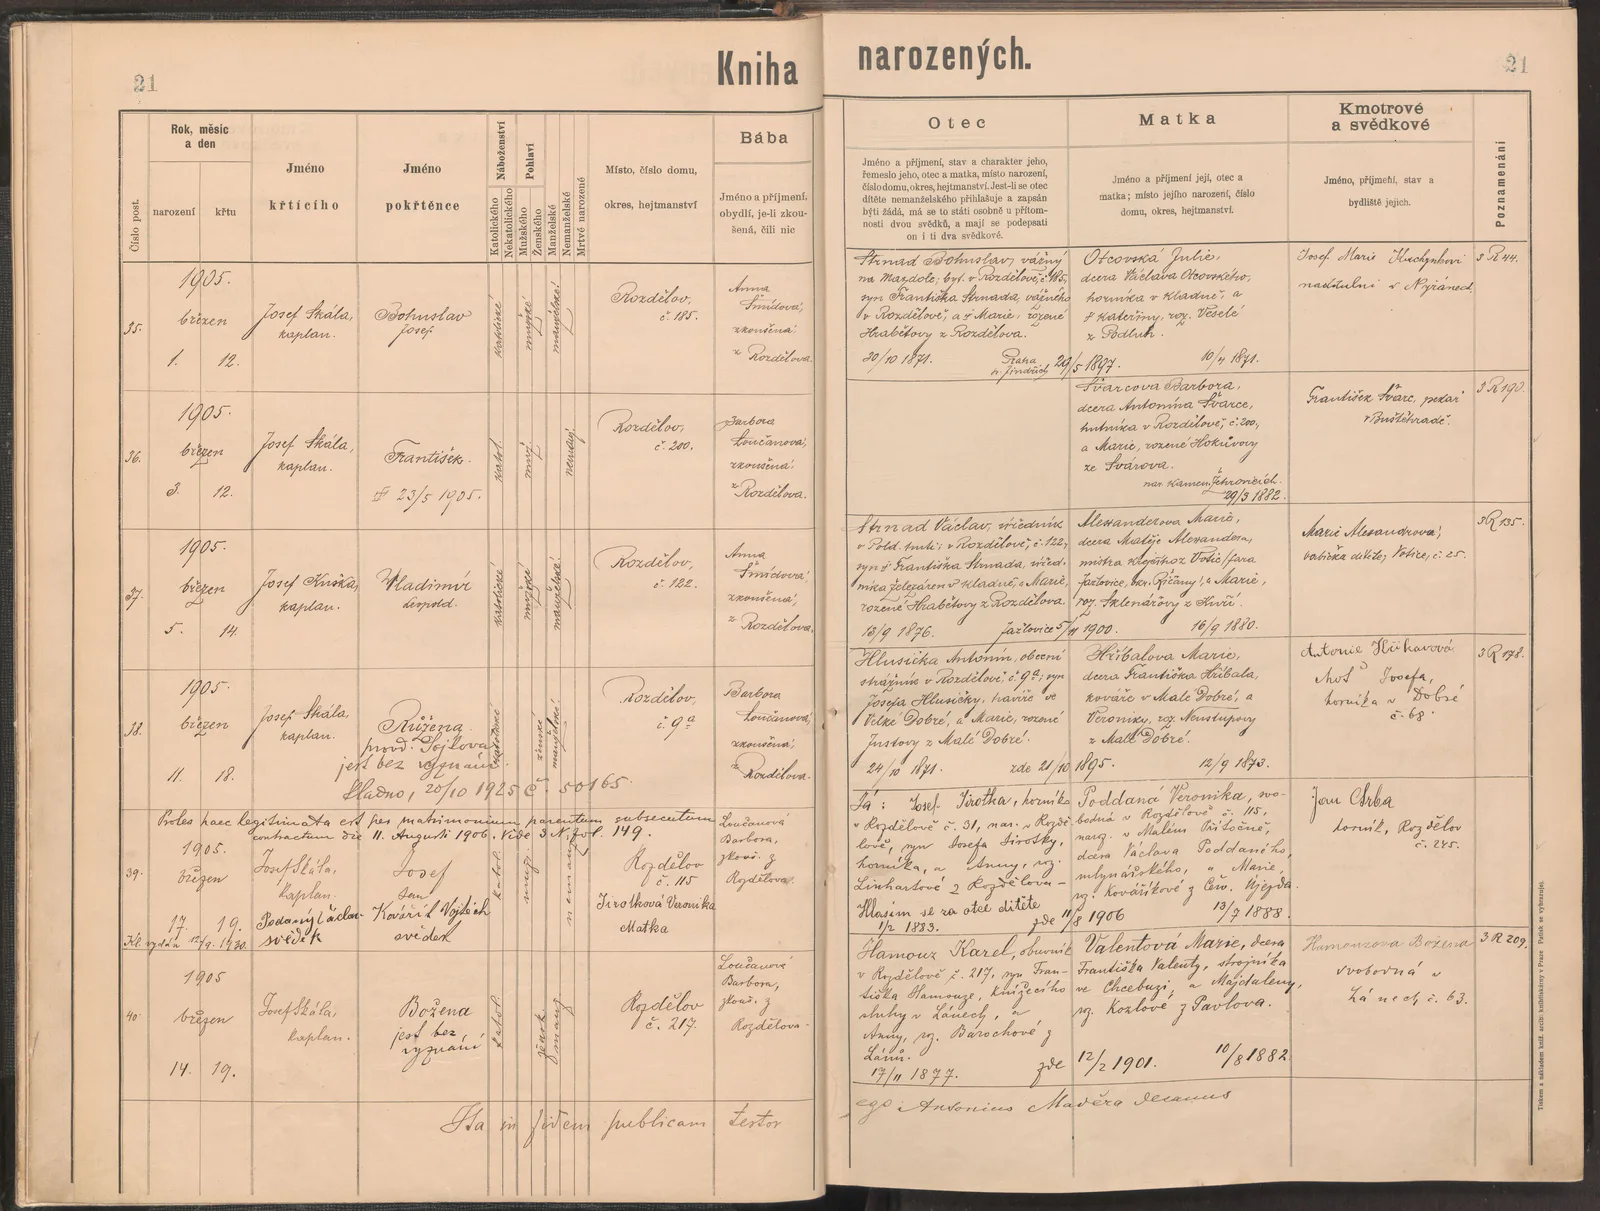 21
Kniha narozených.
21
Číslo post.
Rok, měsíc
a den
narození
křtu
Jméno
křtícího
Jméno
pokřtěnce
Náboženství
Katolického
Nekatolického
Pohlaví
Mužského
Ženského
Manželské
Nemanželské
Mrtvé narozené
Místo, číslo domu,
okres, hejtmanství
Bába
Jméno a příjmení,
obydlí, je-li zkou-
šená, čili nic
Otec
Jméno a příjmení, stav a charakter jeho,
řemeslo jeho, otec a matka, místo narození,
číslo domu, okres, hejtmanství. Jest-li se otec
dítěte nemanželského přihlašuje a zapsán
býti žádá, má se to státi osobně u přítom-
nosti dvou svědků, a mají se podepsati
on i ti dva svědkové.
Matka
Jméno a příjmení její, otec a
matka; místo jejího narození, číslo
domu, okres, hejtmanství.
Kmotrové
a svědkové
Jméno, příjmení, stav a
bydliště jejich.
Poznamenání
35.
1905.
březen
1. 12.
Josef Skála,
kaplan.
Bohuslav
Josef
katolické
mužské
manželské
Rozdělov,
č. 185.
Anna
Šmídová,
zkoušená
z Rozdělova.
Strnad Bohuslav, vážný
na Maydole, byt. v Rozdělově, č. 185,
syn Františka Strnada, vážného
v Rozdělově, a Marie, rozené
Hrabětovy z Rozdělova.
30/10 1871. Praha
sv. Jindřich 29/5 1897.
Otcovská Julie,
dcera Václava Otcovského,
horníka v Kladně, a
† Kateřiny, roz. Veselé
z Podluh.
10/4 1871.
Josef Marie Kuchynkovi
nadstulní v Nýřaned
3 R 44.
36.
1905.
březen
3. 12.
Josef Skála,
kaplan.
František.
† 23/5 1905.
katol.
muž.
nemanž.
Rozdělov,
č. 200.
Barbora
Loučanová,
zkoušená,
z Rozdělova.
Švarcova Barbora,
dcera Antonína Švarce,
hutníka v Rozdělově, č. 200,
a Marie, rozené Hokůvovy
ze Svárova.
nar. Kamen. Žehrovicích.
29/3 1882.
František Švarc, pekař
v Buštěhradě.
3 R 190.
37.
1905.
březen
5. 14.
Josef Kuška,
kaplan.
Vladimír
Leopold.
katolické
mužské
manželské
Rozdělov,
č. 122.
Anna
Šmídová,
zkoušená,
z Rozdělova.
Strnad Václav, úředník
v Pold. huti, v Rozdělově, č. 122,
syn † Františka Strnada, úřed-
níka železáren v Kladně, a Marie,
rozené Hrabětovy z Rozdělova.
13/9 1876. Jažlovice 5/11 1900.
Alexanderova Marie,
dcera Matěje Alexandera,
mistra krejčího z Votic, fara
Jažlovice, okr. Říčany, a Marie,
roz. Sklenářovy z Kuří.
16/9 1880.
Marie Alexandrova,
babička dítěte, Votice, č. 25.
3 R 135.
38.
1905.
březen
11. 18.
Josef Skála,
kaplan.
Růžena
provd. Sojkova
jest bez vyznání
Kladno, 20/10 1925 č. 50165
katolické
ženské
manželské
Rozdělov,
č. 9a
Barbora
Loučanová,
zkoušená,
z Rozdělova.
Hlusička Antonín, obecní
strážník v Rozdělově, č. 9a, syn
Josefa Hlusičky, havíře ve
Velké Dobré, a Marie, rozené
Justovy z Malé Dobré.
24/10 1871. zde 21/10 1895.
Hříbalova Marie,
dcera Františka Hříbala,
kováře v Malé Dobré, a
Veroniky, roz. Neustupovy
z Malé Dobré.
12/9 1873.
Antonie Hůkavová
choť Josefa,
horníka v Dobré
č. 68.
3 R 178.
Proles haec legitimata est per matrimonium parentum subsecutum
contractum die 11. Augusti 1906. Vide 3 N. fol. 149.
39.
1905.
březen
17. 19.
Josef Skála,
kaplan.
Josef
Jan
katol.
muž.
nemanž.
Rozdělov
č. 115
Loučanová
Barbora,
zkouš. z
Rozdělova.
Podaný Václav
svědek
Kovářík Vojtěch
svědek
Jirotková Veronika
Matka
Kl. vydán 12/9. 1930.
Já: Josef Jirotka, horník
v Rozdělově č. 31, nar. v Rozdě-
lově, syn Josefa Jirotky,
horníka, a Anny, roz.
Linhartové z Rozdělova -
Hlásím se za otce dítěte
1/2 1883. zde 11/8 1906
Poddaná Veronika, svo-
bodná v Rozdělově č. 115,
narz. v Malém Přítočně,
dcera Václava Poddaného,
mlynářského, a Marie,
rz. Kováříkové z Červ. Újezda.
13/7 1888.
Jan Crba
horník, Rozdělov
č. 245.
40.
1905
březen
14. 19.
Josef Skála,
kaplan.
Božena
jest bez
vyznání
katol.
žensk.
manž.
Rozdělov
č. 217.
Loučanová
Barbora,
zkouš. z
Rozdělova.
Hamouz Karel, obuvník
v Rozdělově č. 217, syn Fran-
tiška Hamouze, knížecího
sluhy v Lánech, a
Anny, rz. Barochové z
Lánů.
17/11 1877. zde 12/2 1901.
Valentová Marie, dcera
Františka Valenty, strojníka
ve Chcebuzi, a Majdaleny,
rz. Kozlové z Pavlova.
10/8 1882.
Hamouzova Božena
svobodná v
Lánech, č. 63.
3 R 209.
Ita in fidem publicam testor
ego Antonius Maděra decanus
Tiskem a nákladem kníž. arcib. knihtiskárny v Praze. Patisk se vyhrazuje.